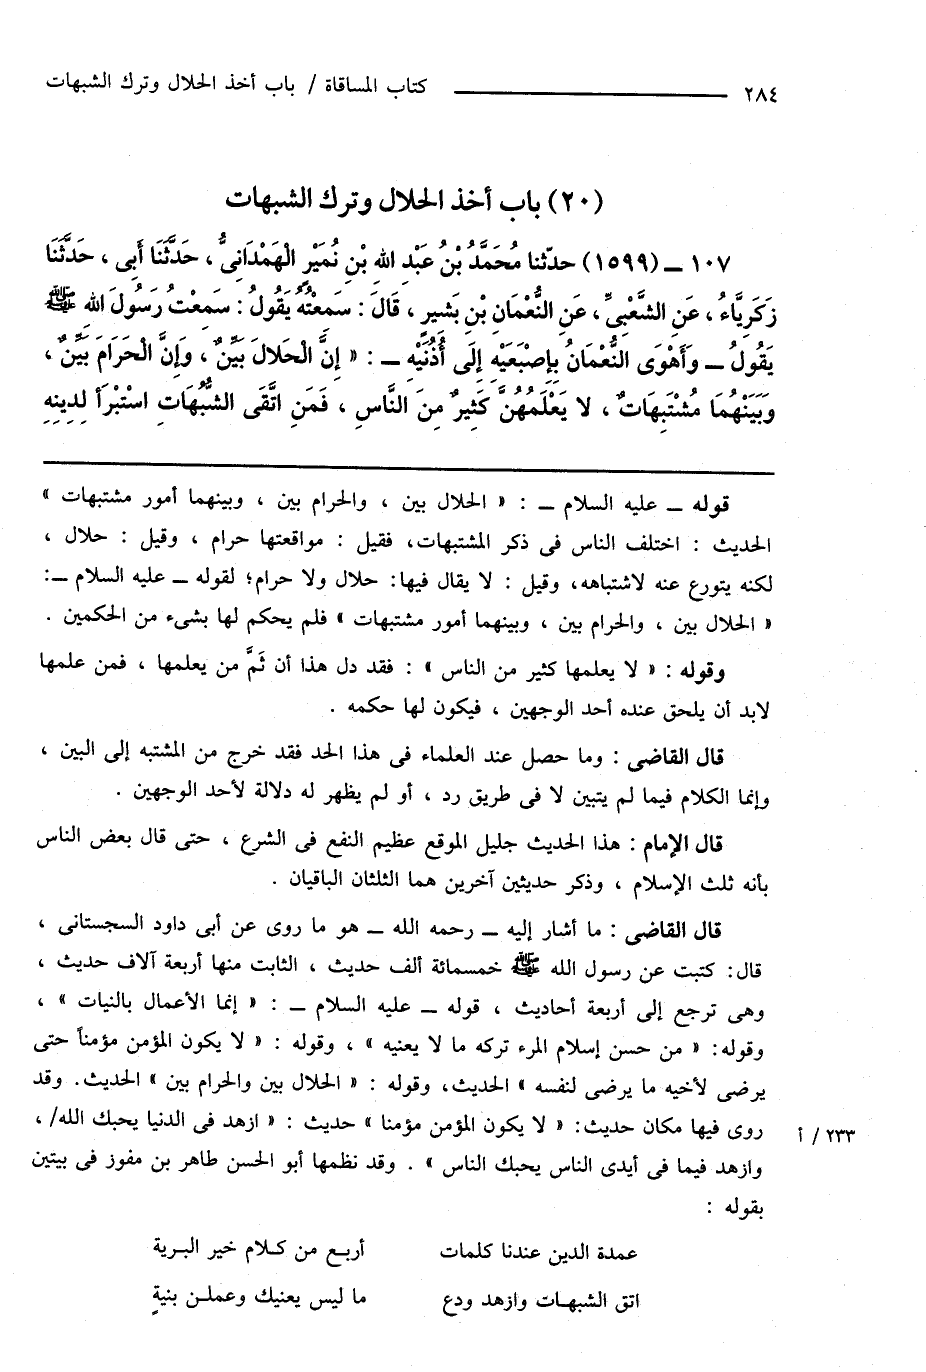 ٢٨٤ ـــــــــــــــــــــ كتاب المساقاة / باب أخذ الحلال وترك الشبهات
(٢٠) باب أخذ الحلال وترك الشبهات
١٠٧ ــ (١٥٩٩) حدّثنا مُحَمَّدُ بْنُ عَبْدِ اللهِ بْنِ نُمَيْرٍ الْهَمْدَانِىُّ ، حَدَّثَنَا أَبِى ، حَدَّثَنَا
زَكَرِيَّاءُ ، عَنِ الشَّعْبِىِّ ، عَنِ النُّعْمَانِ بْنِ بَشِيرٍ ، قَالَ : سَمِعْتُهُ يَقُولُ : سَمِعْتُ رَسُولَ اللهِ ﷺ
يَقُولُ ــ وَأَهْوَى النُّعْمَانُ بِإِصْبَعَيْهِ إِلَى أُذُنَيْهِ ــ : « إِنَّ الْحَلَالَ بَيِّنٌ ، وَإِنَّ الْحَرَامَ بَيِّنٌ ،
وَبَيْنَهُمَا مُشْتَبِهَاتٌ ، لا يَعْلَمُهُنَّ كَثِيرٌ مِنَ النَّاسِ ، فَمَنِ اتَّقَى الشُّبُهَاتِ اسْتَبْرَأَ لِدِينِهِ
قوله ــ عليه السلام ــ : « الحلال بين ، والحرام بين ، وبينهما أمور مشتبهات »
الحديث : اختلف الناس فى ذكر المشتبهات، فقيل : مواقعتها حرام ، وقيل : حلال ،
لكنه يتورع عنه لاشتباهه، وقيل : لا يقال فيها: حلال ولا حرام؛ لقوله ــ عليه السلام ــ:
« الحلال بين ، والحرام بين ، وبينهما أمور مشتبهات » فلم يحكم لها بشىء من الحكمين .
وقوله : « لا يعلمها كثير من الناس » : فقد دل هذا أن ثَمَّ من يعلمها ، فمن علمها
لابد أن يلحق عنده أحد الوجهين ، فيكون لها حكمه .
قال القاضى : وما حصل عند العلماء فى هذا الحد فقد خرج من المشتبه إلى البين ،
وإنما الكلام فيما لم يتبين لا فى طريق رد ، أو لم يظهر له دلالة لأحد الوجهين .
قال الإمام : هذا الحديث جليل الموقع عظيم النفع فى الشرع ، حتى قال بعض الناس
بأنه ثلث الإسلام ، وذكر حديثين آخرين هما الثلثان الباقيان .
قال القاضى : ما أشار إليه ــ رحمه الله ــ هو ما روى عن أبى داود السجستانى ،
قال: كتبت عن رسول الله ﷺ خمسمائة ألف حديث ، الثابت منها أربعة آلاف حديث ،
وهى ترجع إلى أربعة أحاديث ، قوله ــ عليه السلام ــ : « إنما الأعمال بالنيات » ،
وقوله: « من حسن إسلام المرء تركه ما لا يعنيه » ، وقوله : « لا يكون المؤمن مؤمناً حتى
يرضى لأخيه ما يرضى لنفسه » الحديث، وقوله : « الحلال بين والحرام بين » الحديث. وقد
روى فيها مكان حديث: « لا يكون المؤمن مؤمنا » حديث : « ازهد فى الدنيا يحبك الله/ ، ٢٣٣ / أ
وازهد فيما فى أيدى الناس يحبك الناس » . وقد نظمها أبو الحسن طاهر بن مفوز فى بيتين
بقوله :
عمدة الدين عندنا كلمات أربـع من كـلام خير البـرية
اتق الشبهـات وازهد ودع ما ليس يعنيك وعملـن بنيةٍ